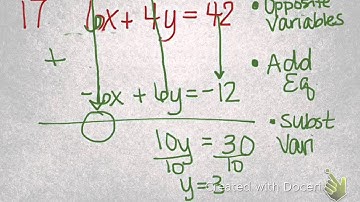 17 6x + 4y = 42
• Opposite
Variables
+
• Add
Eq
-6x + 6y = -12
• Subst
Vari
10y = 30
10 10
y = 3
Created with Doceri